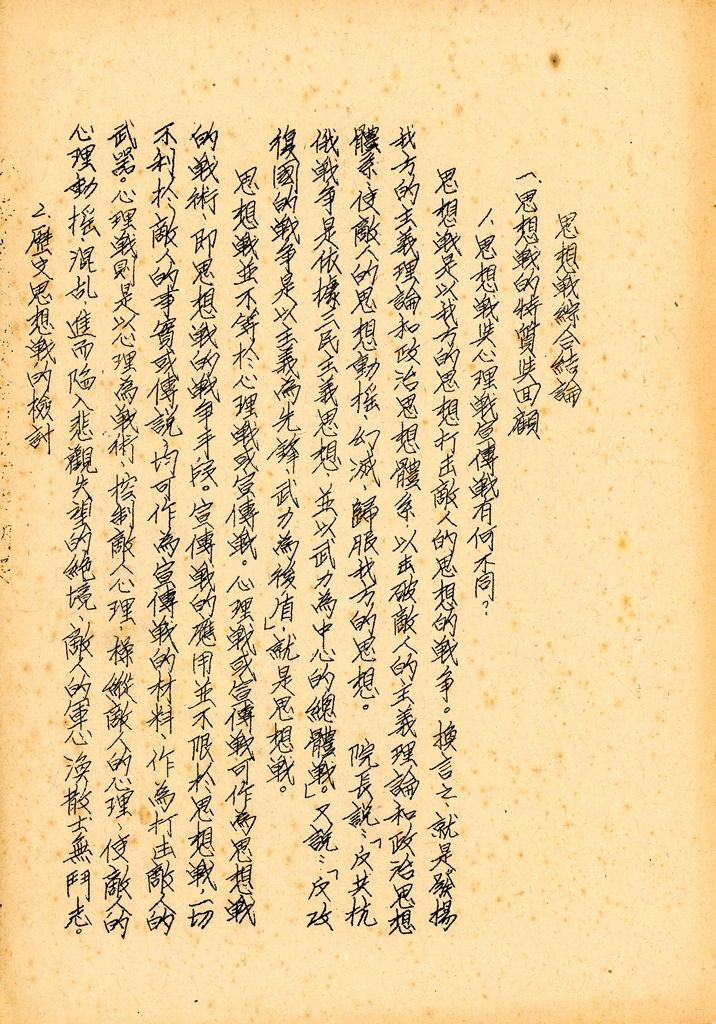 思想戰綜合結論
一、思想戰的特質與回顧
1.思想戰與心理戰宣傳戰有何不同？
思想戰是以我方的思想打击敵人的思想的戰争。換言之、就是發揚
我方的主義理論和政治思想體系、以击破敵人的主義理論和政治思想
體系、使敵人的思想動摇、幻滅、歸服我方的思想。　院長說：「反共抗
俄戰争是依據三民主義思想、並以武力為中心的總體戰。」又說：「反攻
復國的戰争是以主義為先鋒、武力為後盾」、就是思想戰。
思想戰並不等於心理戰或宣傳戰。心理戰或宣傳戰可作為思想戰
的戰術、即思想戰的戰争手段。宣傳戰的應用並不限於思想戰、一切
不利於敵人的事實或傳說、均可作為宣傳戰的材料、作為打击敵人的
武器。心理戰則是以心理為戰術、控制敵人心理、操縱敵人的心理、使敵人的
心理動摇、混乱、進而陷入悲觀失望的絶境、敵人的軍心渙散士無鬥志。
2.歷史思想戰的檢討